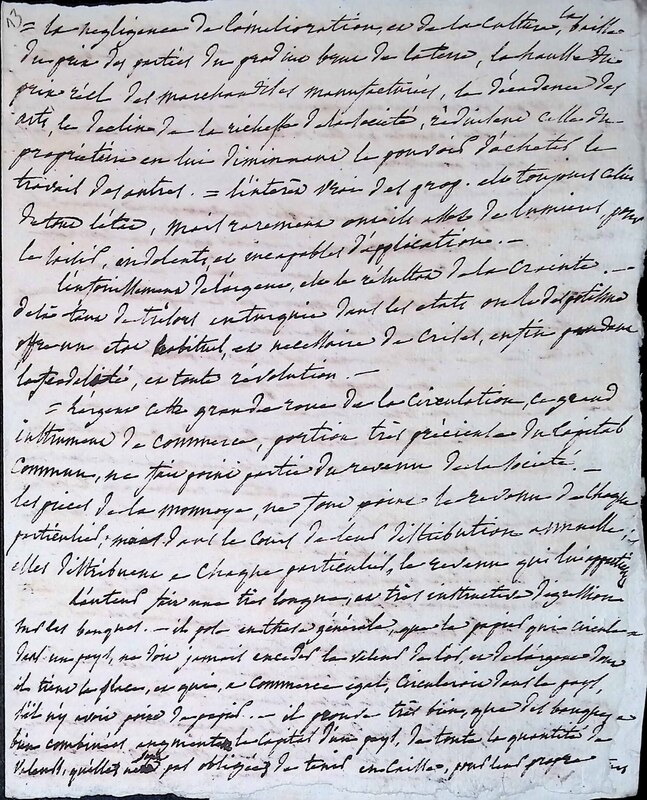 13
= la negligence de l'amelioration, et de la culture, la baisse
du prix des parties du produit brut de la terre, la hausse du
prix réel des marchandises manufacturées, la décadence des
arts, le declin de la richesse de la société, réduisent celle du
propriétaire en lui diminuant le pouvoir d'acheter le
travail des autres. = l'interêt vrai des prop. est toujours celui
de tout l'état, mais rarement ont-ils assez de lumieres, pour
le saisir, indolents, et incapables d'application. —
l'enfouissement de l'argent, est le résultat de la crainte. —
de là tant de trésors en turquie dans les etats ou le despotisme
offre un etat habituel, et necessaire de crises, enfin pendant
la féodalité, en toute révolution. —
= l'argent cette grande roue de la circulation, ce grand
instrument de commerce, portion très précieuse du capital
commun, ne fait point partie du revenu de la société. —
les pieces de la monnoye, ne sont point le revenu de chaque
particulier, mais dans le cours de leur distribution annuelle,
elles distribuent a chaque particulier, le revenu qui lui appartient
l'auteur fait une très longue, et très instructive digression
sur les banques. — il pose en these générale, que le papier qui circule
dans un pays, ne doit jamais exceder la valeur de l'or, et de l'argent dont
il tient la place, et qui, a commerce egal, circuleroit dans le pays,
s'il n'y avoit point de papier. — il prouve très bien, que des banques
bien combinées, augmentent le capital d'un pays, de toute la quantité de
valeurs, qu'elles ne sont pas obligées de tenir en caisse, pour leur propre